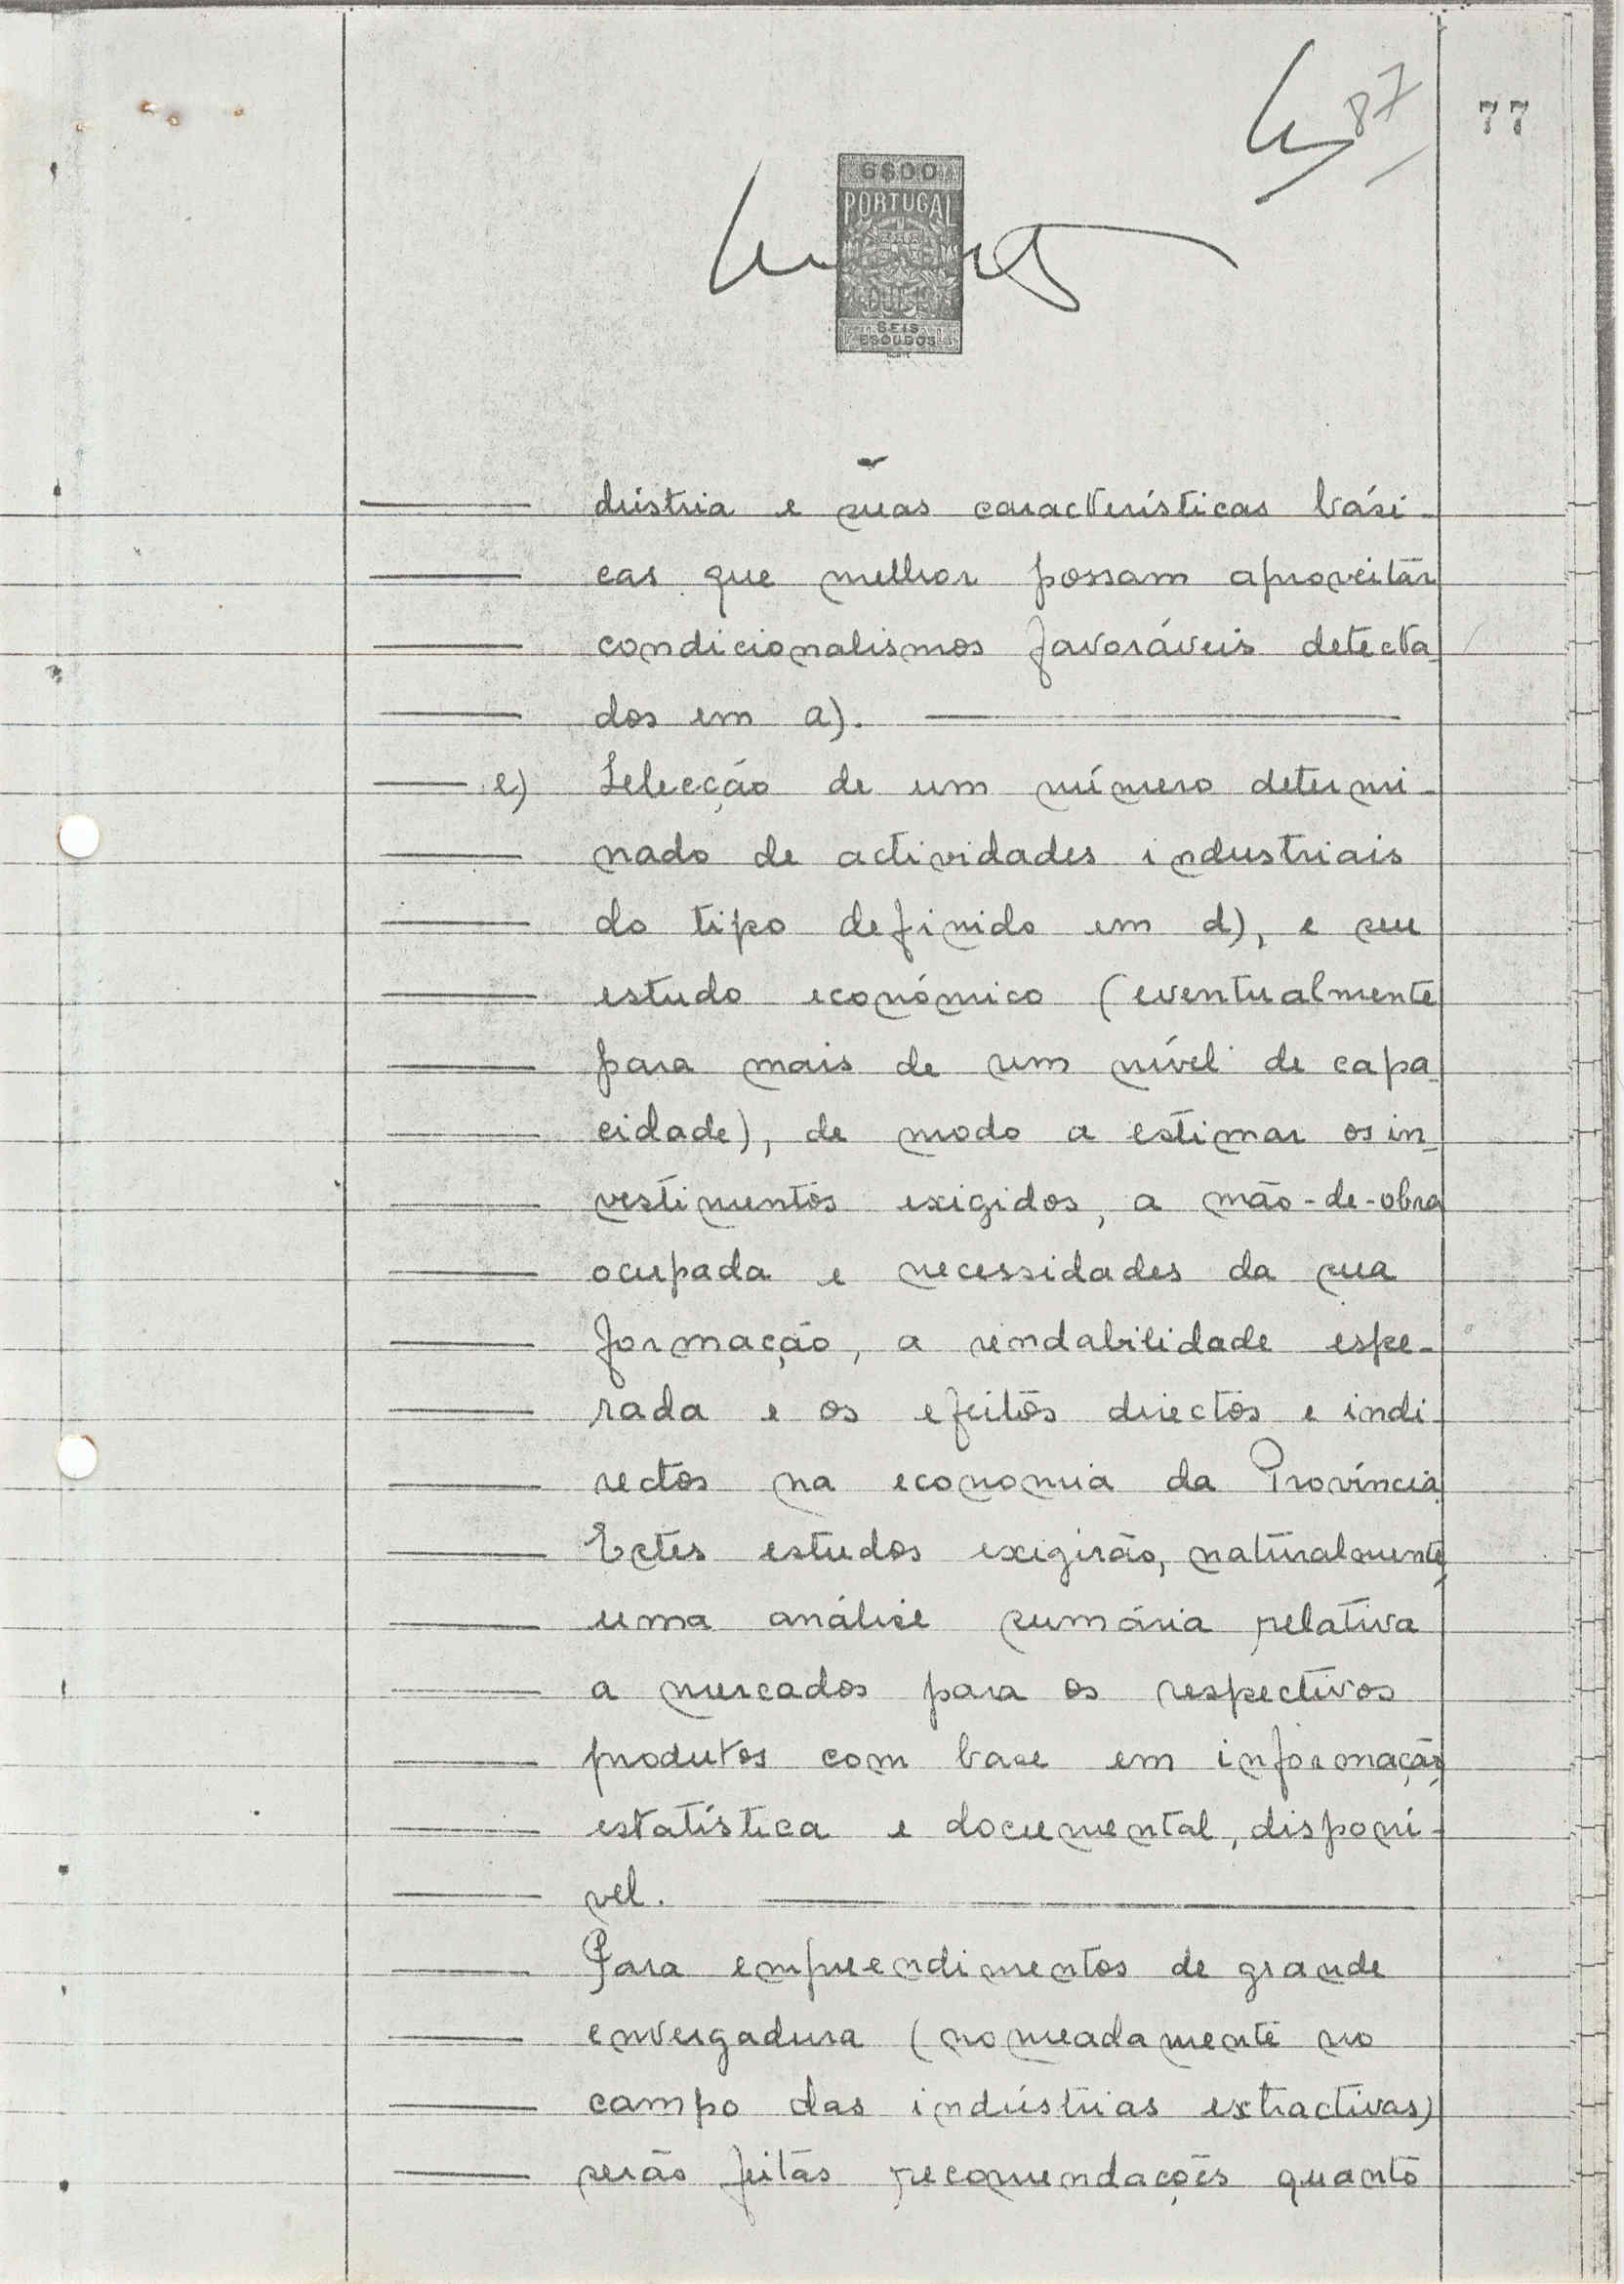 87
77
6$00
PORTUGAL
SEIS
ESCUDOS
dústria e suas características bási-
cas que melhor possam aproveitar
condicionalismos favoráveis detecta-
dos em a).
e) Selecção de um número determi-
nado de actividades industriais
do tipo definido em d), e seu
estudo económico (eventualmente
para mais de um nível de capa-
cidade), de modo a estimar os in-
vestimentos exigidos, a mão-de-obra
ocupada e necessidades da sua
formação, a rendabilidade espe-
rada e os efeitos directos e indi-
rectos na economia da Província.
Estes estudos exigirão, naturalmente,
uma análise sumária relativa
a mercados para os respectivos
produtos com base em informação
estatística e documental, disponí-
vel.
Para empreendimentos de grande
envergadura (nomeadamente no
campo das indústrias extractivas)
serão feitas recomendações quanto